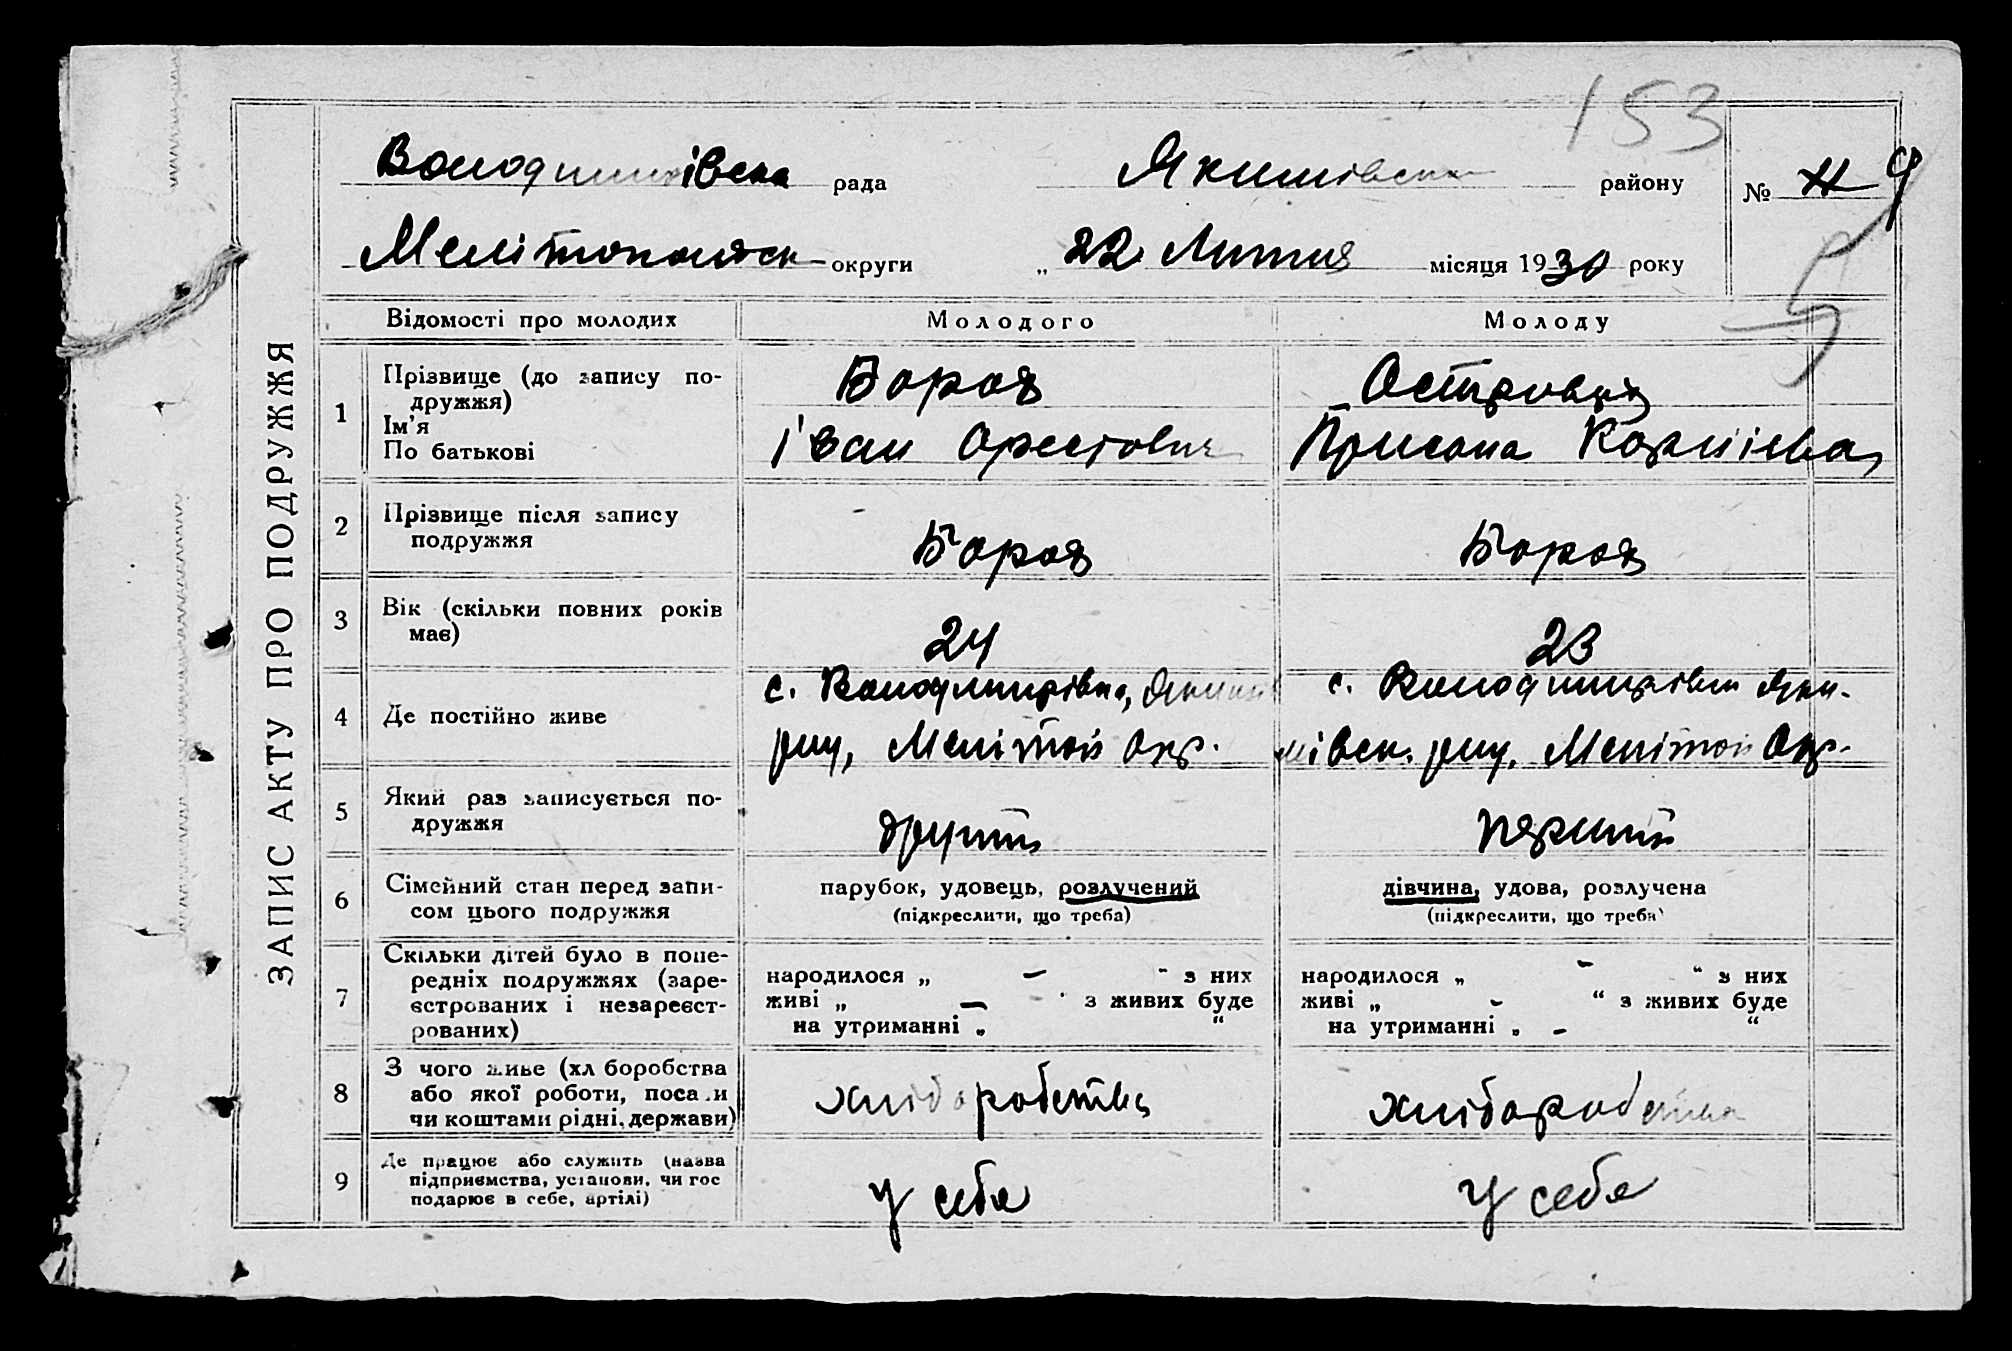 153
Володимирівська рада Якимівськ району № 9
Мелітопольск округи „ 22 Лютия місяця 1930 року
5
ЗАПИС АКТУ ПРО ПОДРУЖЖЯ
Відомості про молодих Молодого Молоду
1 Прізвище (до запису по-
дружжя)
Ім’я
По батькові
Бороз
Іван Орестович
Присана
2 Прізвище після запису
подружжя
Бороз Бороз
3 Вік (скільки повних років
має)
24 23
4 Де постійно живе
с. Володимирівка, Якимів
рну, Мелітоп Окр.
с. Володимирівка Яки-
мівськ. рну, Мелітоп Окр.
5 Який раз записується по-
дружжя
другий перший
6 Сімейний стан перед запи-
сом цього подружжя
парубок, удовець, розлучений
(підкреслити, що треба)
дівчина, удова, розлучена
(підкреслити, що треба)
7 Скільки дітей було в попе-
редніх подружжях (заре-
єстрованих і незареєст-
рованих)
народилося „ — “ з них
живі „ — “ з живих буде
на утриманні „ “
народилося „ - “ з них
живі „ - “ з живих буде
на утриманні „ - “
8 З чого живе (хліборобства
або якої роботи, посади
чи коштами рідні, держави)
хліборобства хліборобства
9 Де працює або служить (назва
підприємства, установи, чи гос
подарює в себе, артілі)
у себе у себе